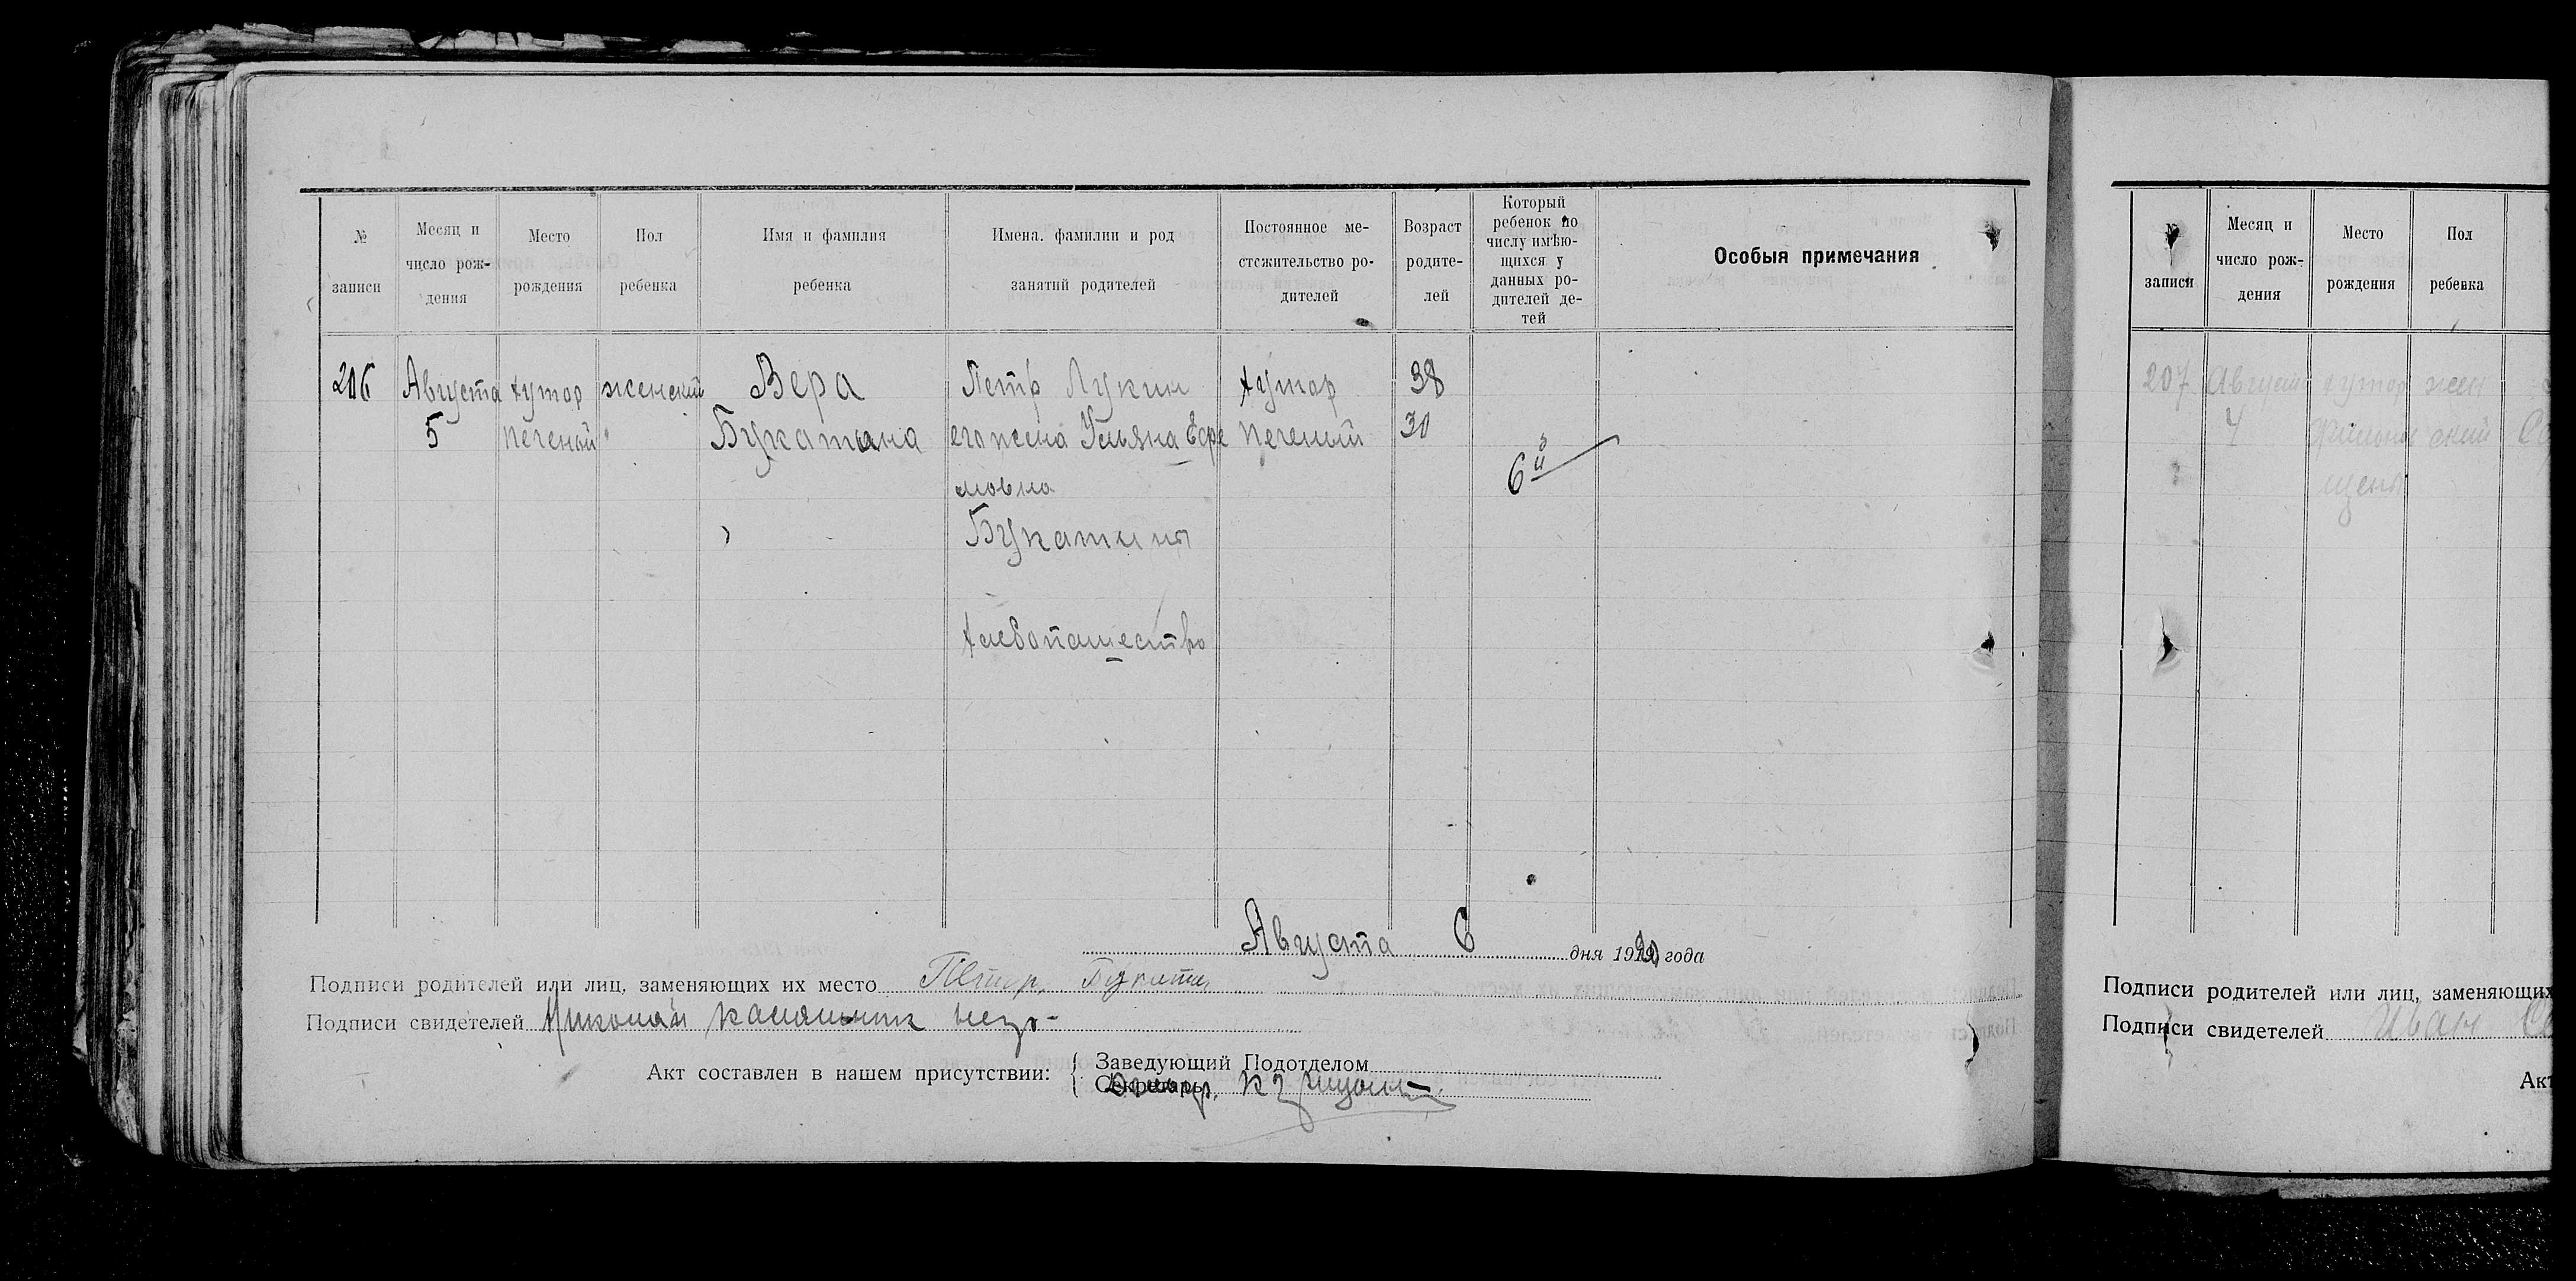 № записи
Месяц и число рождения
Место рождения
Пол ребенка
Имя и фамилия ребенка
Имена. фамилии и род занятий родителей
Постоянное местожительство родителей
Возраст родителей
Который ребенок по числу имѣющихся у данных родителей детей
Особыя примечания
206 Августа хутор женский Вера Петр Лукин хутор 38
5 печеный Букатина его жена Ульяна Ефре печеный 30
6й
мовна
Букатины
хлебопашество
Августа 6 дня 1920 года
Подписи родителей или лиц, заменяющих их место Петр Букатин
Подписи свидетелей Николай
Акт составлен в нашем присутствии:
Заведующий Подотделом
Секретарь
№ записи
Месяц и число рождения
Место рождения
Пол ребенка
207 Августа хутор жен
4 ский
Подписи родителей или лиц, заменяющих
Подписи свидетелей Иван
Акт